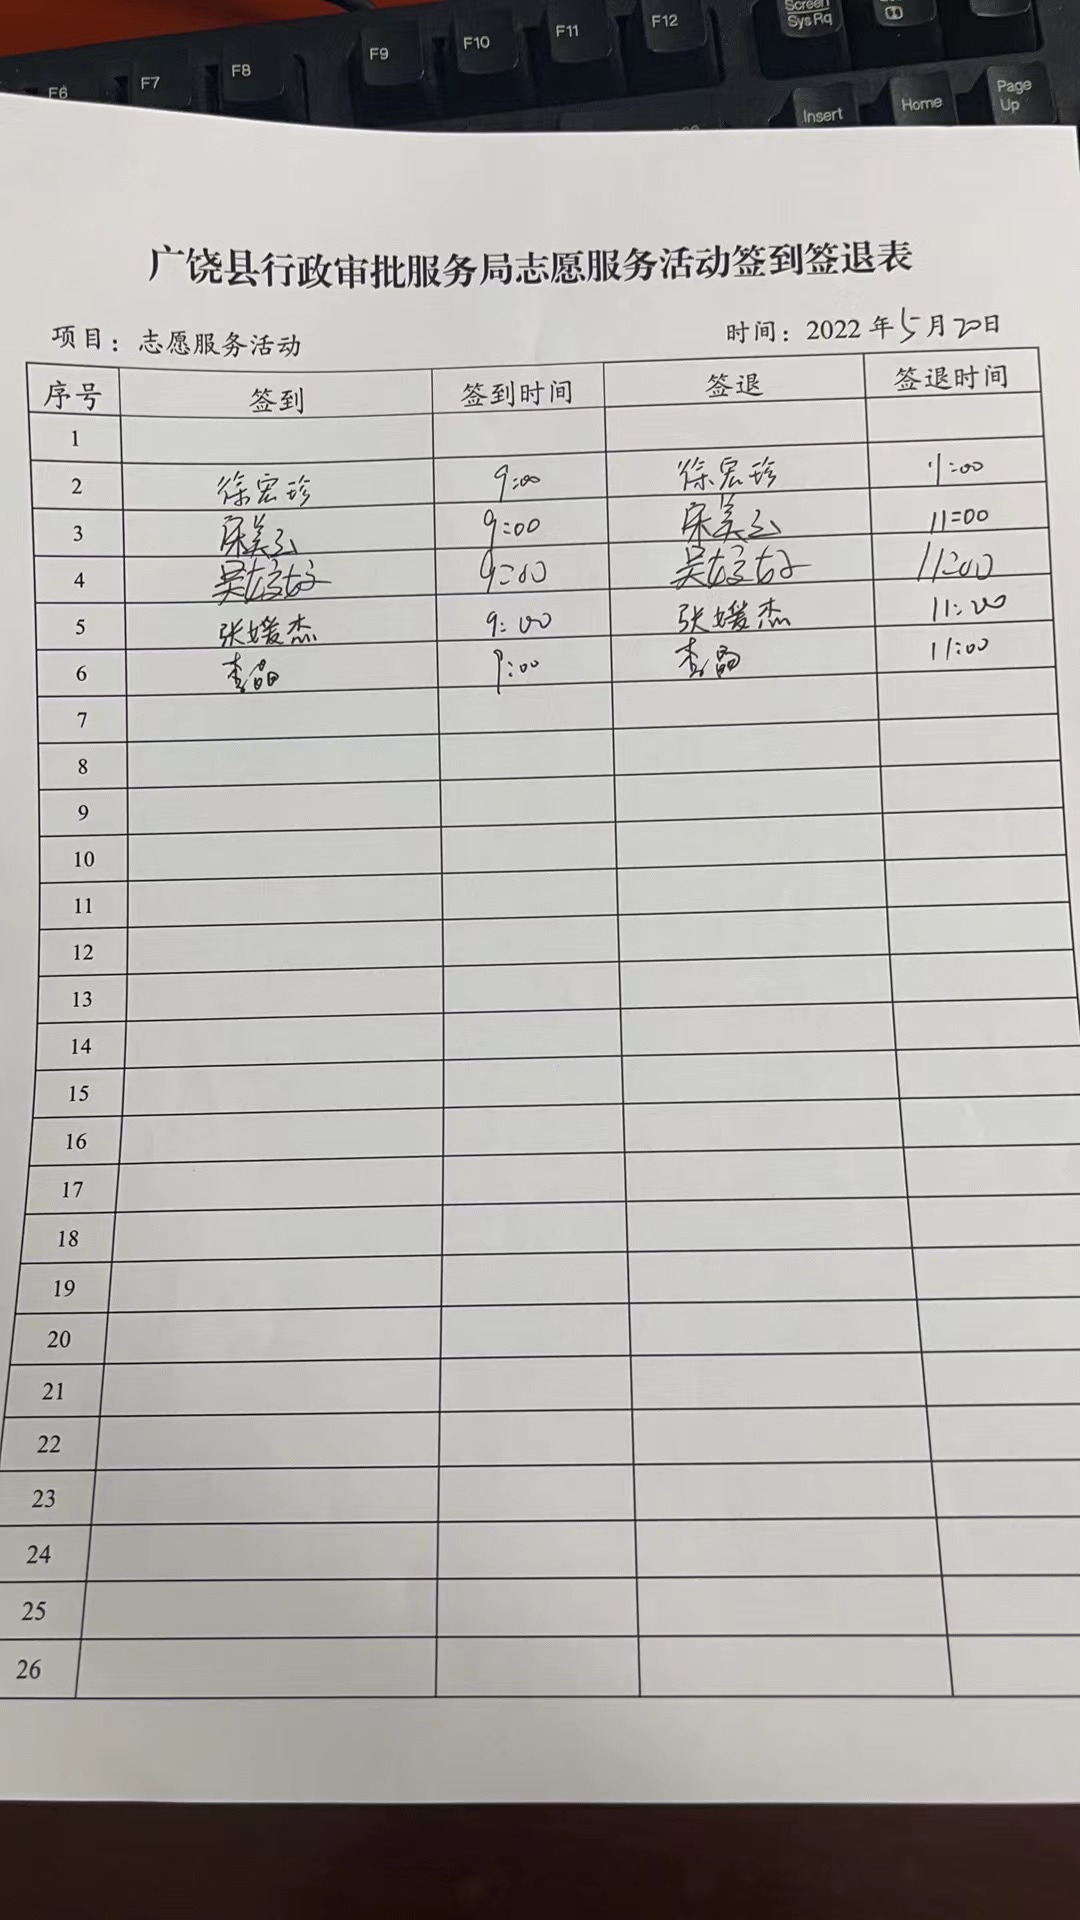 F6 F7 F8 F9 F10 F11 F12 Screen
SysRq
Insert Home Page
Up
广饶县行政审批服务局志愿服务活动签到签退表
项目：志愿服务活动 时间：2022年5月20日
序号 签到 签到时间 签退 签退时间
1
2 徐宏珍 9:00 徐宏珍 11:00
3 宋美云 9:00 宋美云 11:00
4 吴婷婷 9:00 吴婷婷 11:00
5 张媛杰 9:00 张媛杰 11:00
6 李晶 9:00 李晶 11:00
7
8
9
10
11
12
13
14
15
16
17
18
19
20
21
22
23
24
25
26